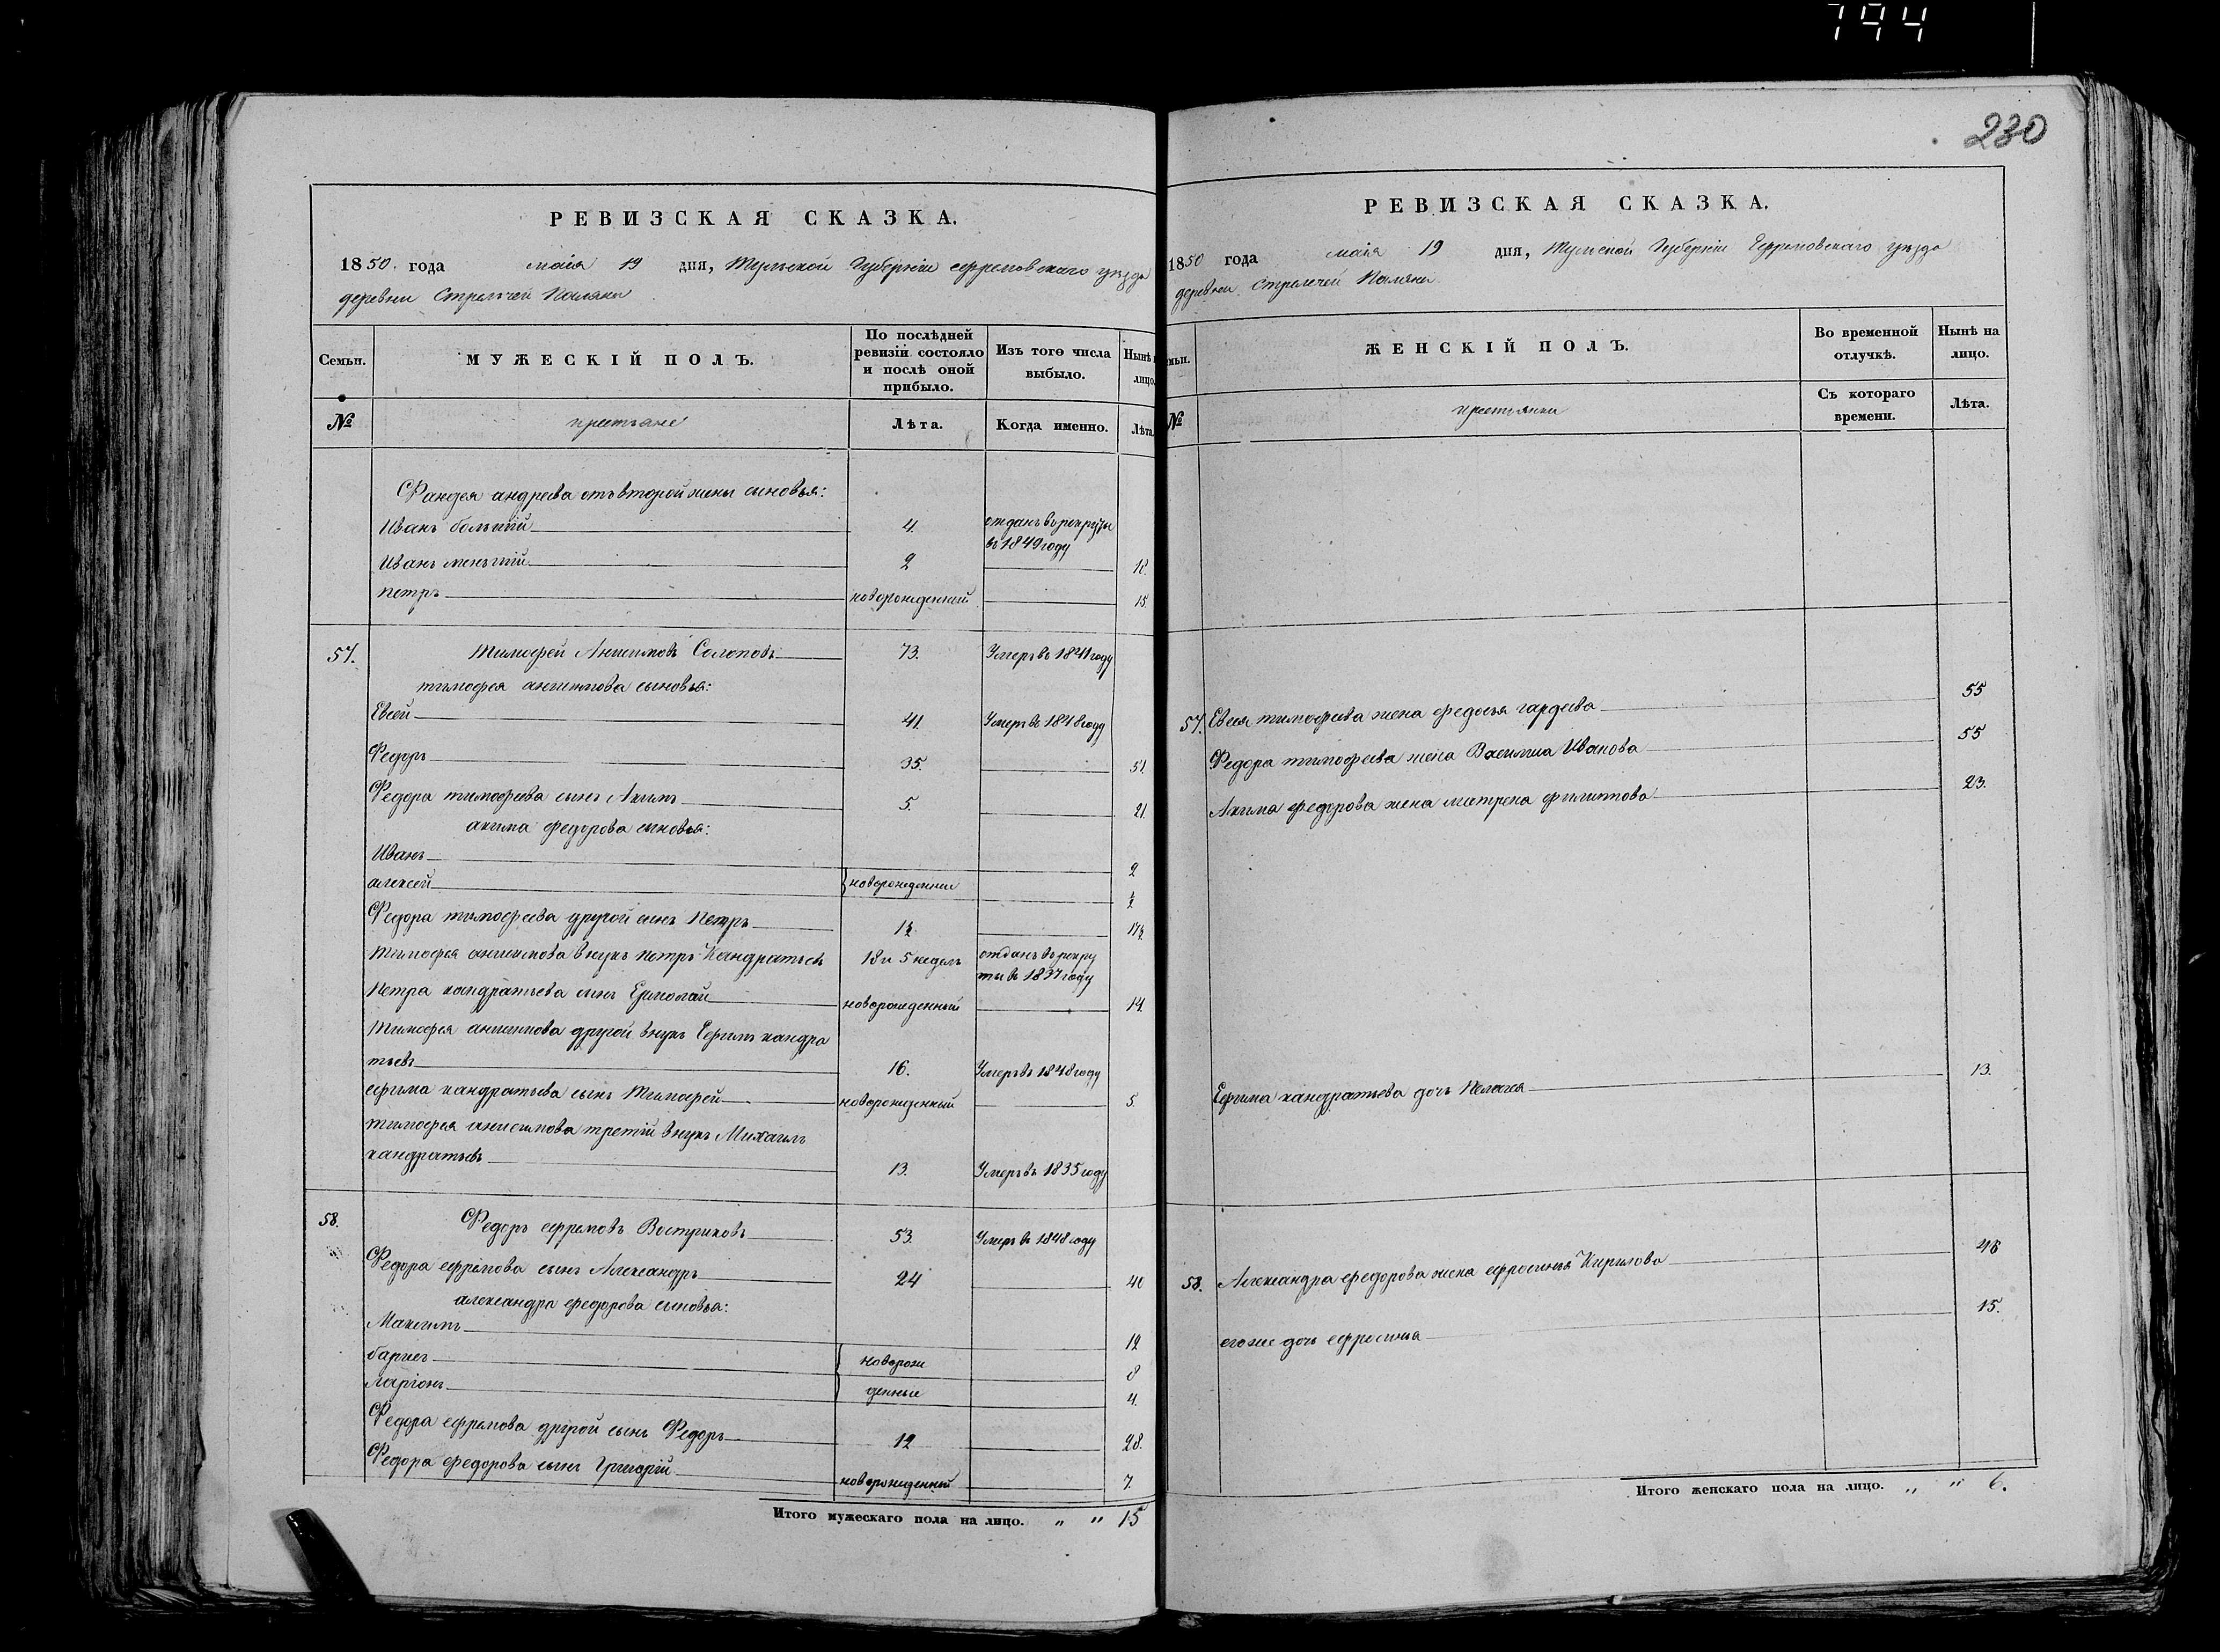 794
230
РЕВИЗСКАЯ СКАЗКА.
1850. года маія 19 дня, Тульской Губерніи ефремовскаго уѣзда
деревни Стрелечей Поляны
Семьи.
МУЖЕСКІЙ ПОЛЪ.
По послѣдней ревизіи состояло и послѣ оной прибыло.
Изъ того числа выбыло.
Нынѣ
лицо.
№
крестьяне
Лѣта.
Когда именно.
Лѣта.
андреева отъ второй жены сыновья:
Иванъ большій 4. отданъ въ рекруты
въ 1849 году
Иванъ меньшій 2 18.
Петръ новорожденный 15.
57. Тимофей Анисимовъ Солоповъ 73. Умеръ въ 1841 году
тимофея анисимова сыновья:
Евсей 41. Умеръ въ 1848 году
Федоръ 35. 51.
Федора тимофеева сынъ Акимъ 5. 21.
акима федорова сыновья:
Иванъ 2
алексей новорожденные
Федора тимофеева другой сынъ Петръ
Тимофея анисимова внукъ петръ Кандратьевъ 18 и 5 недель отданъ въ рекру
ты въ 1837 году
Петра кандратьева сынъ Ермолай новорожденный 14.
Тимофея анисимова другой внукъ Ефимъ кандра
тьевъ 16. Умеръ въ 1848 году
ефима кандратьева сынъ Тимофей новорожденный 5.
тимофея анисимова третій внукъ Михаилъ
кандратьевъ 13. Умеръ въ 1835 году
58. Федоръ ефремовъ Востриковъ 53. Умеръ въ 1848 году
Федора ефремова сынъ Александръ 24 40
александра федорова сыновья:
Максимъ 12
барисъ новорож 8
ларіонъ денные 4.
Федора ефремова другой сынъ Федоръ 12 28.
Федора федорова сынъ Григорій новорожденный 7.
Итого мужескаго пола на лицо. „ „ 15
РЕВИЗСКАЯ СКАЗКА.
1850 года маія 19 дня, Тульской Губерніи Ефремовскаго уѣзда
деревни Стрелечей Поляны
мьи.
ЖЕНСКІЙ ПОЛЪ.
Во временной отлучкѣ.
Нынѣ на лицо.
№
крестьянки
Съ котораго времени.
Лѣта.
57. Евсея тимофеева жена федосья гардеева 55
Федора тимофеева жена Василиса Иванова 55
Акима федорова жена матрена филипова 23.
Ефима кандратьева дочь Пелагея 13.
58. Александра федорова жена ефросинья Кирилова
его же дочь ефросинья 15.
Итого женскаго пола на лицо. „ „ 6.